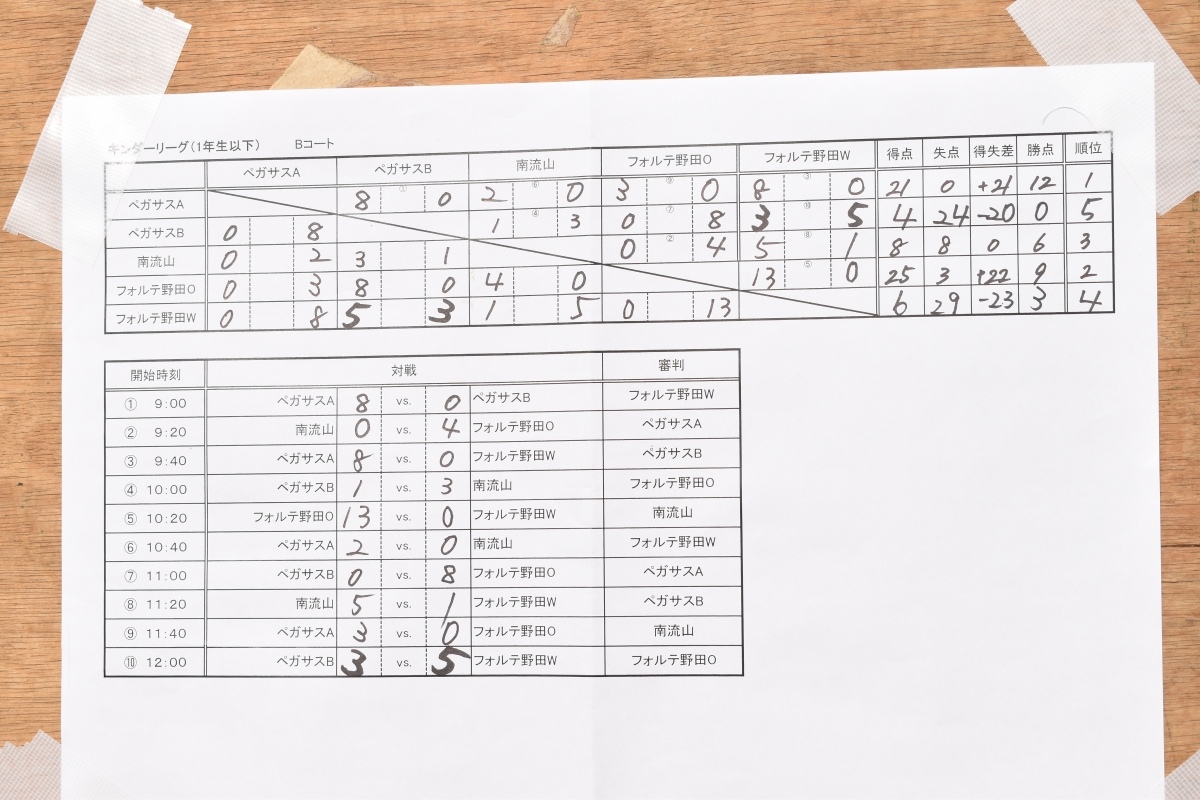 キンダーリーグ(1年生以下) Bコート
ペガサスA ペガサスB 南流山 フォルテ野田O フォルテ野田W 得点 失点 得失差 勝点 順位
ペガサスA 8 ① 0 2 ⑥ 0 3 ⑨ 0 8 ③ 0 21 0 +21 12 1
ペガサスB 0 8 1 ④ 3 0 ⑦ 8 3 ⑩ 5 4 24 -20 0 5
南流山 0 2 3 1 0 ② 4 5 ⑧ 1 8 8 0 6 3
フォルテ野田O 0 3 8 0 4 0 13 ⑤ 0 25 3 +22 9 2
フォルテ野田W 0 8 5 3 1 5 0 13 6 29 -23 3 4
開始時刻 対戦 審判
① 9:00 ペガサスA 8 vs. 0 ペガサスB フォルテ野田W
② 9:20 南流山 0 vs. 4 フォルテ野田O ペガサスA
③ 9:40 ペガサスA 8 vs. 0 フォルテ野田W ペガサスB
④ 10:00 ペガサスB 1 vs. 3 南流山 フォルテ野田O
⑤ 10:20 フォルテ野田O 13 vs. 0 フォルテ野田W 南流山
⑥ 10:40 ペガサスA 2 vs. 0 南流山 フォルテ野田W
⑦ 11:00 ペガサスB 0 vs. 8 フォルテ野田O ペガサスA
⑧ 11:20 南流山 5 vs. 1 フォルテ野田W ペガサスB
⑨ 11:40 ペガサスA 3 vs. 0 フォルテ野田O 南流山
⑩ 12:00 ペガサスB 3 vs. 5 フォルテ野田W フォルテ野田O